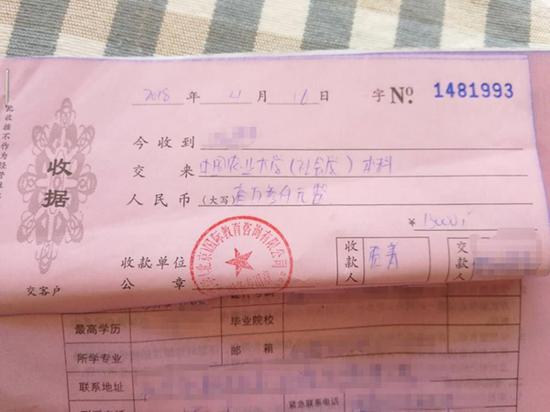 2018 年 4 月 12 日 字 No. 1481993
今收到
交来 中国农业大学(社会学)本科
人民币(大写) 壹万叁仟元整
¥ 13000
收款单位公章
收款人
交款人
收据
交客户
北京 国际教育咨询有限公司
最高学历 毕业院校
所学专业 邮箱
联系地址
紧急联系电话